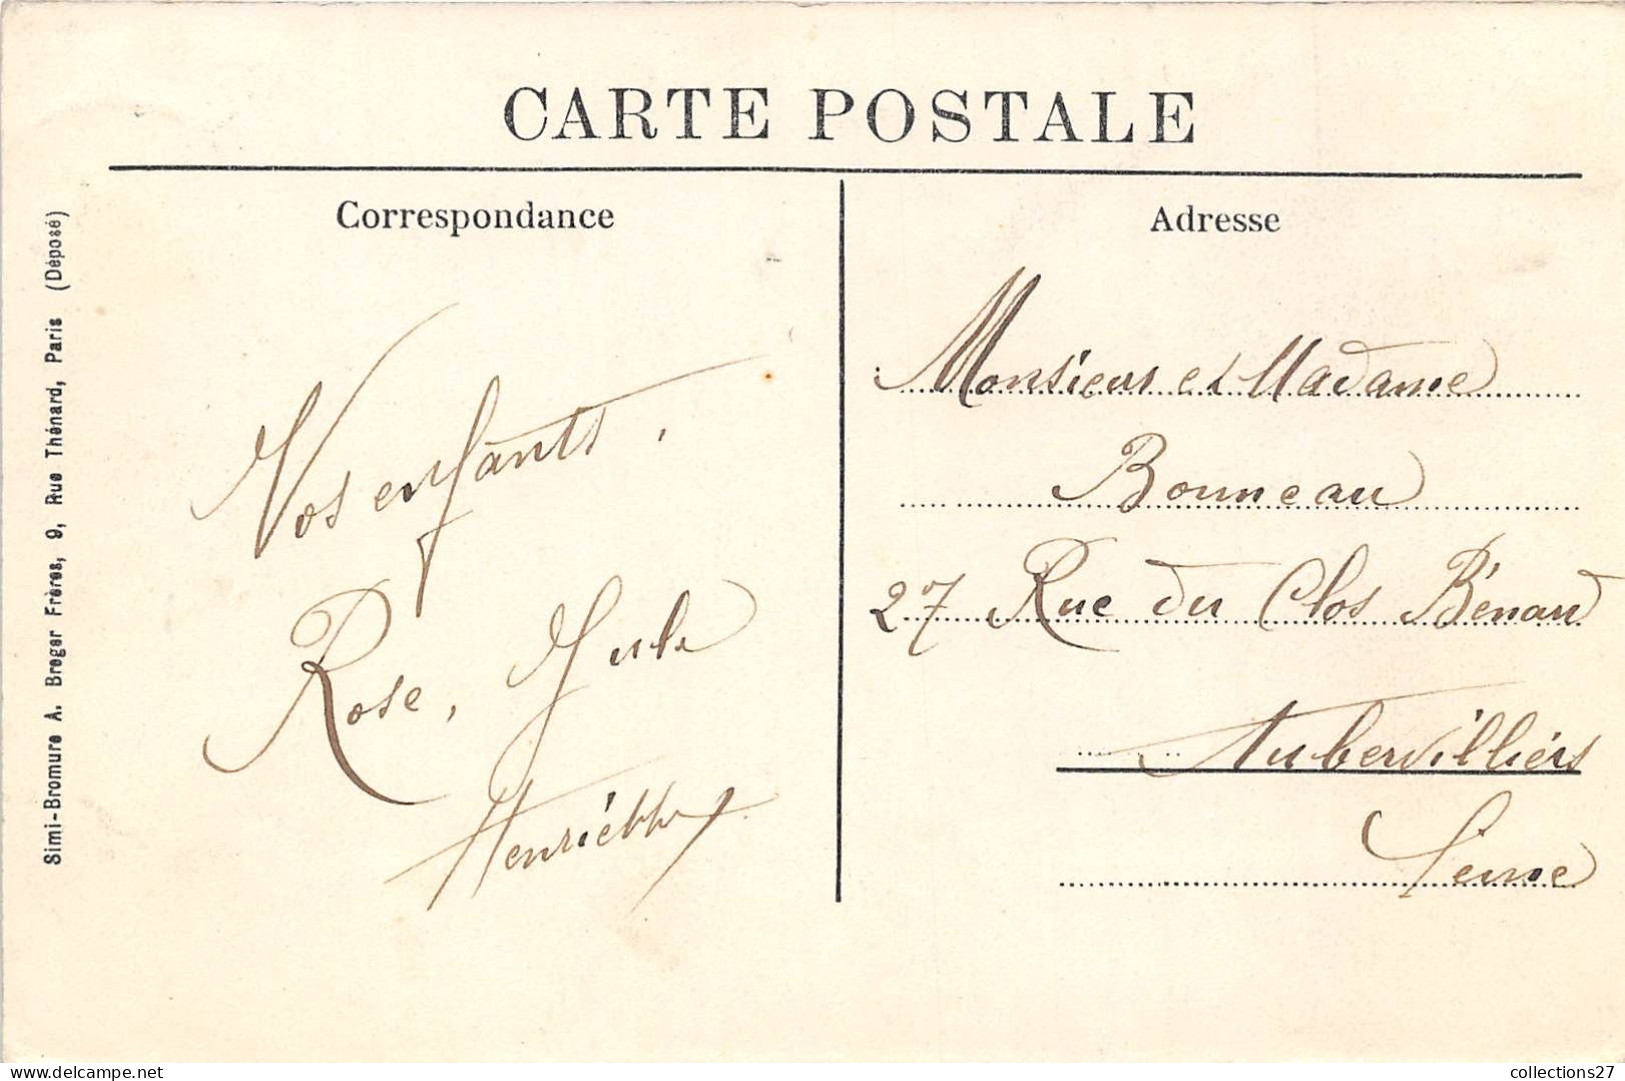 CARTE POSTALE
Correspondance
Vos enfants.
Rose, Jule
Henriette
Adresse
Monsieur et Madame
Bonneau
27 Rue du Clos Bénard
Aubervilliérs
Seine
Simi-Bromure A. Breger Frères, 9, Rue Thénard, Paris (Déposé)
collections27